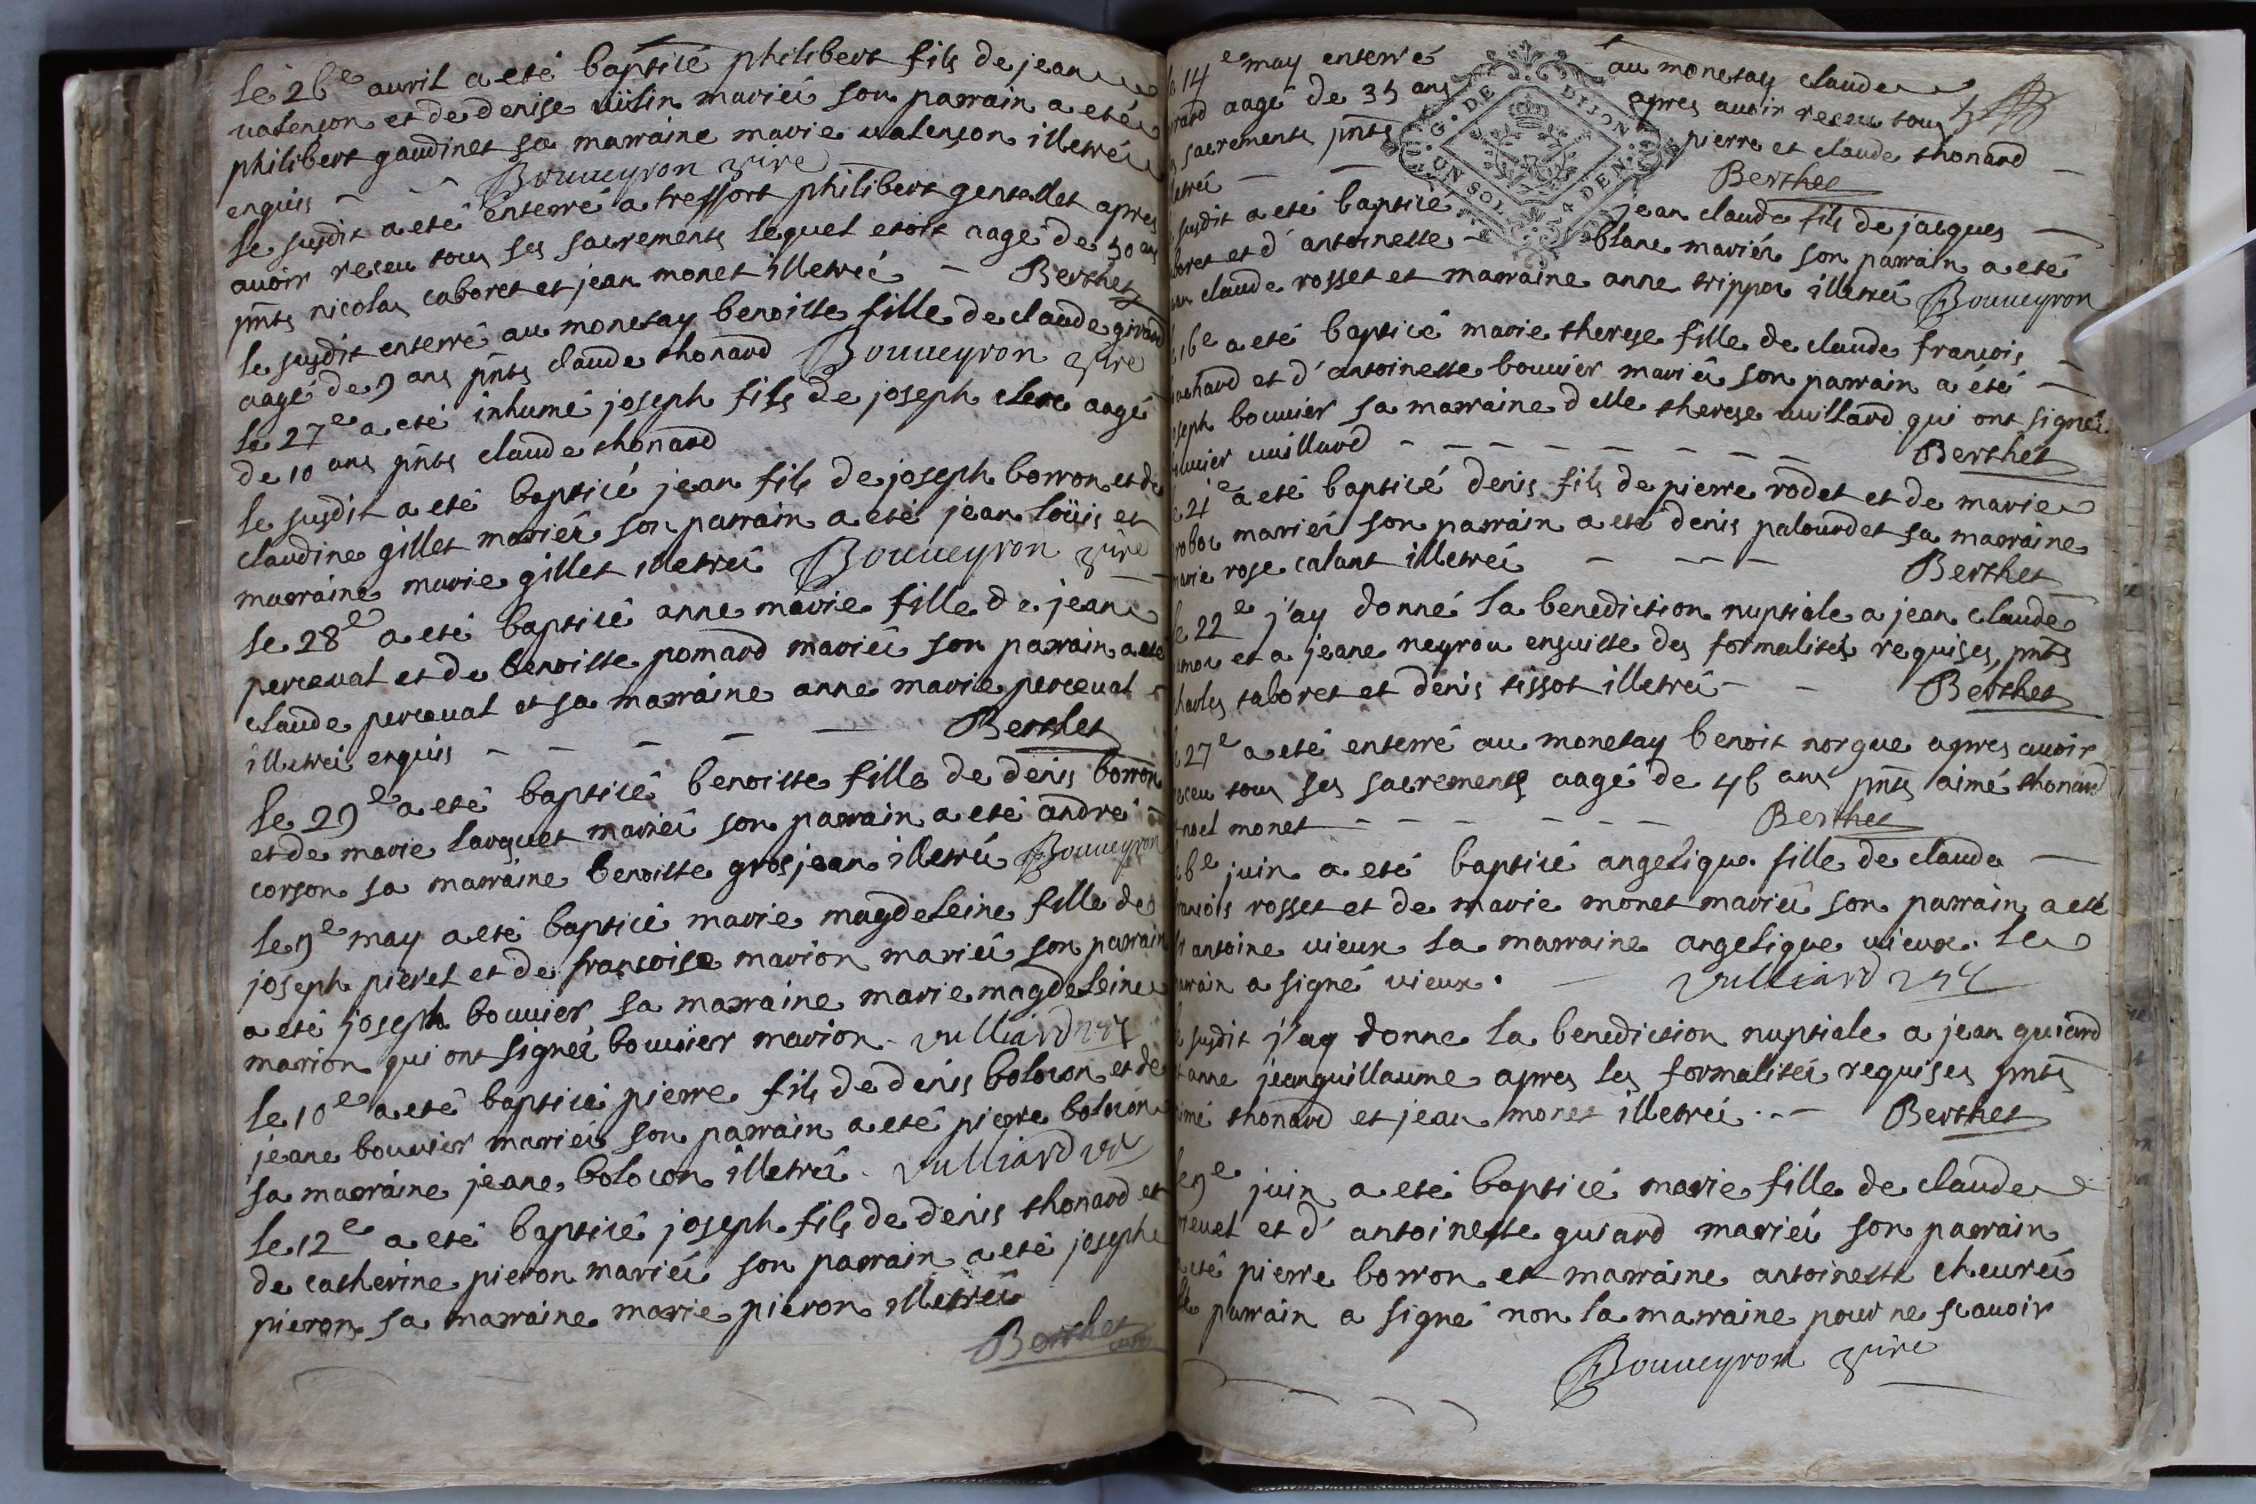 le 26e avril a eté baptisé philibert fils de jean
valençon et de denise mariéi son parrain a eté
philibert gaudinet sa marraine marie valençon illetréi
enquis - - Bouueyron vire
le susdit a eté enterré a tressort philibert apres
avoir receu tous ses sacrements lequel etoit aagé de 50 ans
pnts nicolas caboret et jean monet illetréi - Berthet
le susdit enterré au monetay benoitte fille de claude girard
aagé de 9 ans pnts claude thonard Bouueyron vire
le 27e a eté inhumé joseph fils de joseph clerc aagé
de 10 ans pnts claude thonard
le susdit a eté baptisé jean fils de joseph borron et de
claudine gillet mariéi son parrain a eté jean loüis et
marraine marie gillet illetréi Bouueyron vire
le 28e a eté baptisé anne marie fille de jean
perceval et de benoitte pomard mariéi son parrain a eté
claude perceval et sa marraine anne marie perceval
illetréi enquis - - - - - Berthet
le 29e a eté baptisé benoitte fille de denis borron
et de marie larquet mariéi son parrain a eté andré
corson sa marraine benoitte grosjean illetréi Bouueyron
le 9e may a eté baptisé marie magdeleine fille de
joseph pieret et de françoise marion mariéi son parrain
a eté joseph bouvier sa marraine marie magdeleine
marion qui ont signéi bouvier marion - vulliard vre
le 10e a eté baptisé pierre fils de denis bolozon et de
jeane bouvier mariéi son parrain a eté pierre bolozon
sa marraine jeane bolozon illetréi - vulliard vre
le 12e a eté baptisé joseph fils de denis thonard et
de catherine pieron mariéi son parrain a eté joseph
pieron sa marraine marie pieron illetréi
Berthet curé
le 14e may enterré au monetay claude
aagé de 35 ans apres avoir receu tous
sacrements pnts pierre et claude thonard
illetréi - - Berthet
G. DE DIJON. UN SOL 4 DEN.
le susdit a eté baptisé jean claude fils de jacques -
et d'antoinette - blanc mariéi son parrain a eté
claude rosset et marraine anne trippoz illetréi Bouueyron
le 16e a eté baptisé marie therese fille de claude françois -
et d'antoinette bouvier mariéi son parrain a eté -
joseph bouvier sa marraine delle therese vuillard qui ont signéi
bouvier vuillard - - - - - - - Berthet
le 21e a eté baptisé denis fils de pierre rodet et de marie
mariéi son parrain a eté denis palourdet sa marraine
marie rose calant illetréi - - - - Berthet
le 22e j'ay donné la benediction nuptiale a jean claude
et a jeane neyron ensuitte des formalitéi requises, pnts
charles taboret et denis tissot illetréi - - Berthet
le 27e a eté enterré au monetay benoit norgue apres avoir
receu tous ses sacrements aagé de 46 ans pnts aimé thonard
et noel monet - - - - - - Berthet
le 6e juin a eté baptisé angelique fille de claude -
françois rosset et de marie monet mariéi son parrain a eté
sr antoine vieux sa marraine angelique vieux. le
parrain a signé vieux. - vulliard vre
le susdit j'ay donne la benediction nuptiale a jean guiard
et anne jeanguillaume apres les formalitéi requises pnts
aimé thonard et jean monet illetréi. - Berthet
le 9e juin a eté baptisé marie fille de claude
et d'antoinette guiard mariéi son parrain
a eté pierre borron et marraine antoinette cheuréi
le parrain a signé non la marraine pour ne scauoir
Bouueyron vire